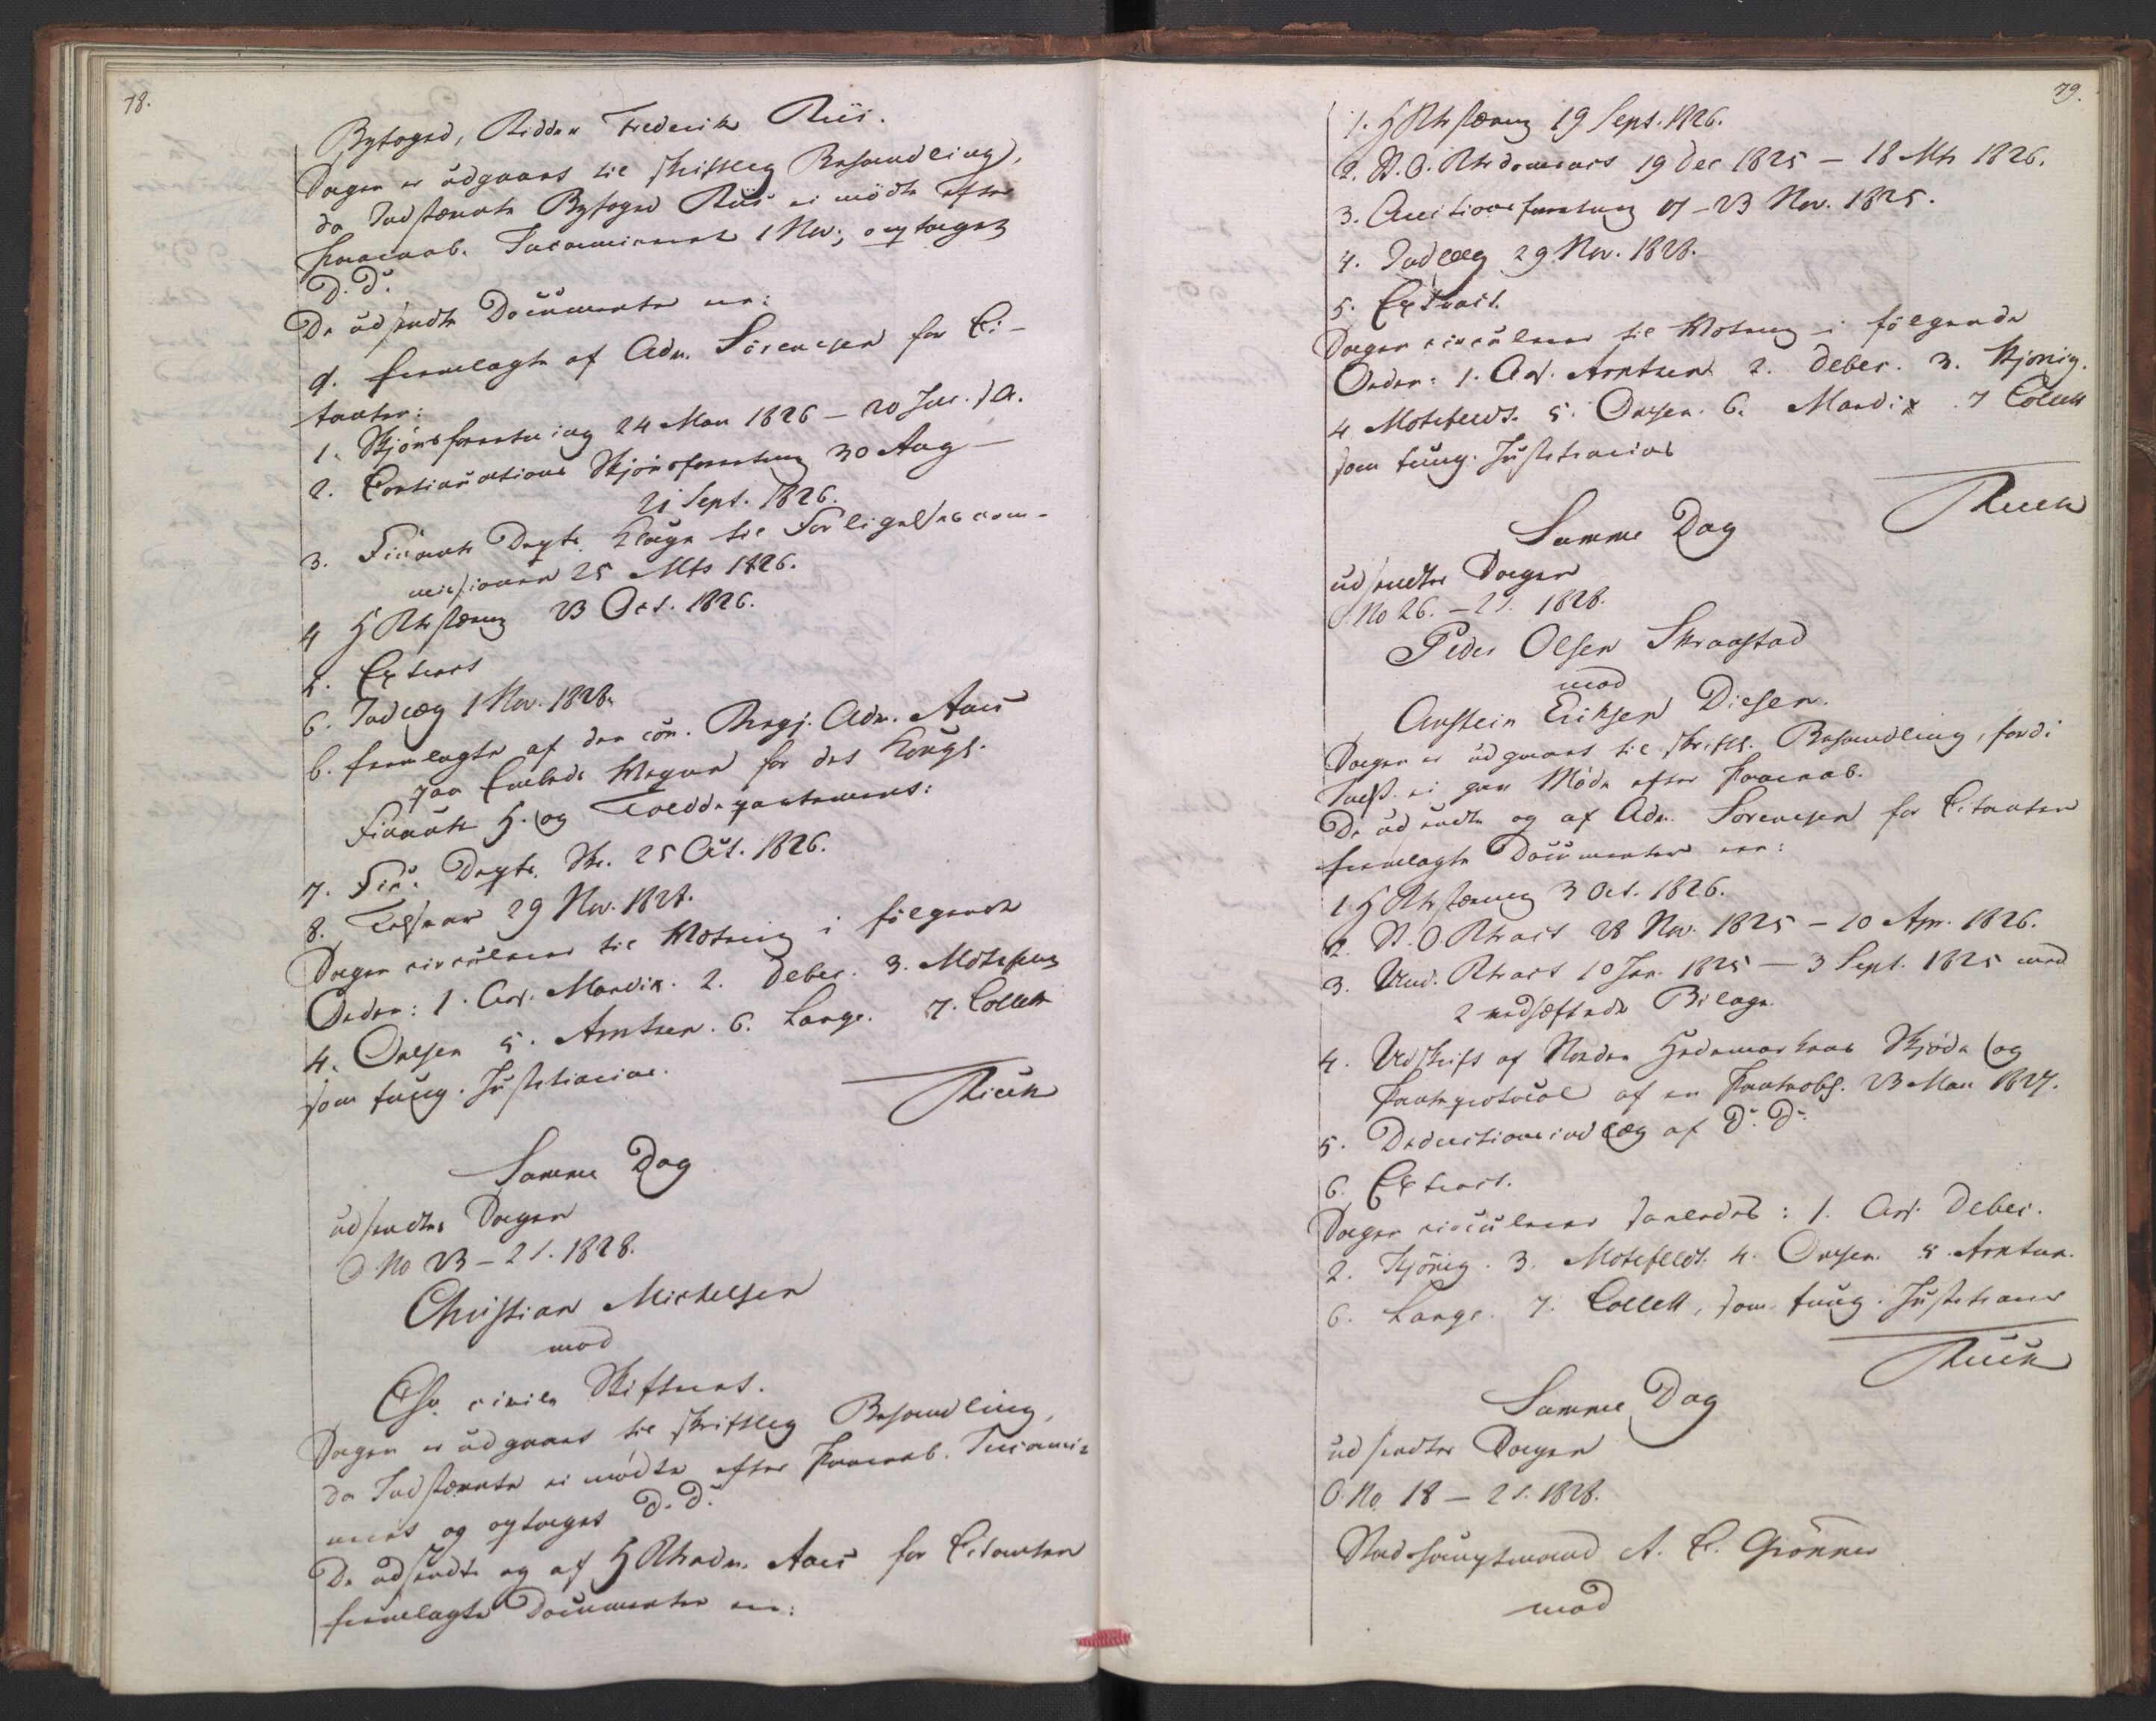 78.
Byfoged, Ridder Frederik Riis.
Sagen er udgaaet til skriftlig Behandling,
da Indstævnte Byfoged Riis ei mødte efter
Paaraab. Incamineret 1 Nov; optaget
D. D.
De udsendte Documenter ere:
a. fremlagte af Adv. Sörensen for Ci-
tanten:
1. Skjönsforretning 24 Mai 1826 – 20 Jul. s. A.
2. Continuations Skjönsforretning 30 Aug –
21 Sept. 1826.
3. Finants Depts. Klage til Forligelsescom-
missionen 25 Mts 1826.
4 HRtsstævng 23 Oct. 1826.
5. Extract
6. Indlæg 1 Nov. 1828.
b. fremlagte af den con. Regj. Adv. Aars
paa Embeds Vegne for det Kongl.
Finants H. og Tolddepartement:
7. Fin. Depts. Skr. 25 Oct. 1826.
8. Tilsvar 29 Nov. 1828.
Sagen circulerer til Votering i følgende
Orden: 1. Ass. Mandix. 2. Debes. 3. Motzfeldt
4. Omsen 5. Arntzen. 6. Lange. 7. Collett
som fung. Justitiarius.
Rieck
Samme Dag
udsendtes Sagen
O No 23 – 2 S. 1828.
Christian Michelsen
mod
Chr. civile Skifteret.
Sagen er udgaaet til skriftlig Behandling,
da Indstævnte ei mødte efter Paaraab. Incami-
neret og optaget D. D.
De udsendte og af HRtsadv. Aars for Citanten
fremlagte Documenter ere:
79.
1. HRtsstævng 19 Sept. 1826.
2. St. O. Rtsdomsact 19 Dec 1825 – 18 Mts 1826.
3. Auctionsforretning 07 – 23 Nov. 1825.
4. Indlæg 29 Nov. 1828.
5. Extract.
Sagen circulerer til Votering i følgende
Orden: 1. Ass. Arntzen 2. Debes. 3. Kjønig.
4 Motzfeldt. 5. Omsen. 6. Mandix 7 Collett
som fung. Justitiarius
Rieck
Samme Dag
udsendtes Sagen
O. No 26. – 2 S. 1828.
Peder Olsen Skraastad
mod
Anstein Eriksen Diesen.
Sagen er udgaaet til skriftl. Behandling, fordi
Indst. ei gav Møde efter Paaraab.
De udsendte og af Adv. Sörensen for Citanten
fremlagte Documenter ere:
1 HRtsstævng 3 Oct. 1826.
2. St. O. Rtsact 28 Nov. 1825 – 10 Apr. 1826.
3. Und. Rtsact 10 Jan. 1825 – 3 Sept. 1825 med
2 vedhæftede Bilage.
4. Udskrift af Nordre Hedemarkens Skjøde og
Panteprotocol af en Panteobl. 23 Mai 1827.
5. Deductionsindlæg af D. D.
6. Extract.
Sagen circulerer saaledes: 1. Ass. Debes.
2. Kjønig. 3. Motzfeldt. 4. Omsen. 5. Arntzen.
6. Lange. 7. Collett, som fung. Justitiarius
Rieck
Samme Dag
udsendtes Sagen
O. No. 18 – 2 S. 1828.
Stadshauptmand A. C. Grönner
mod